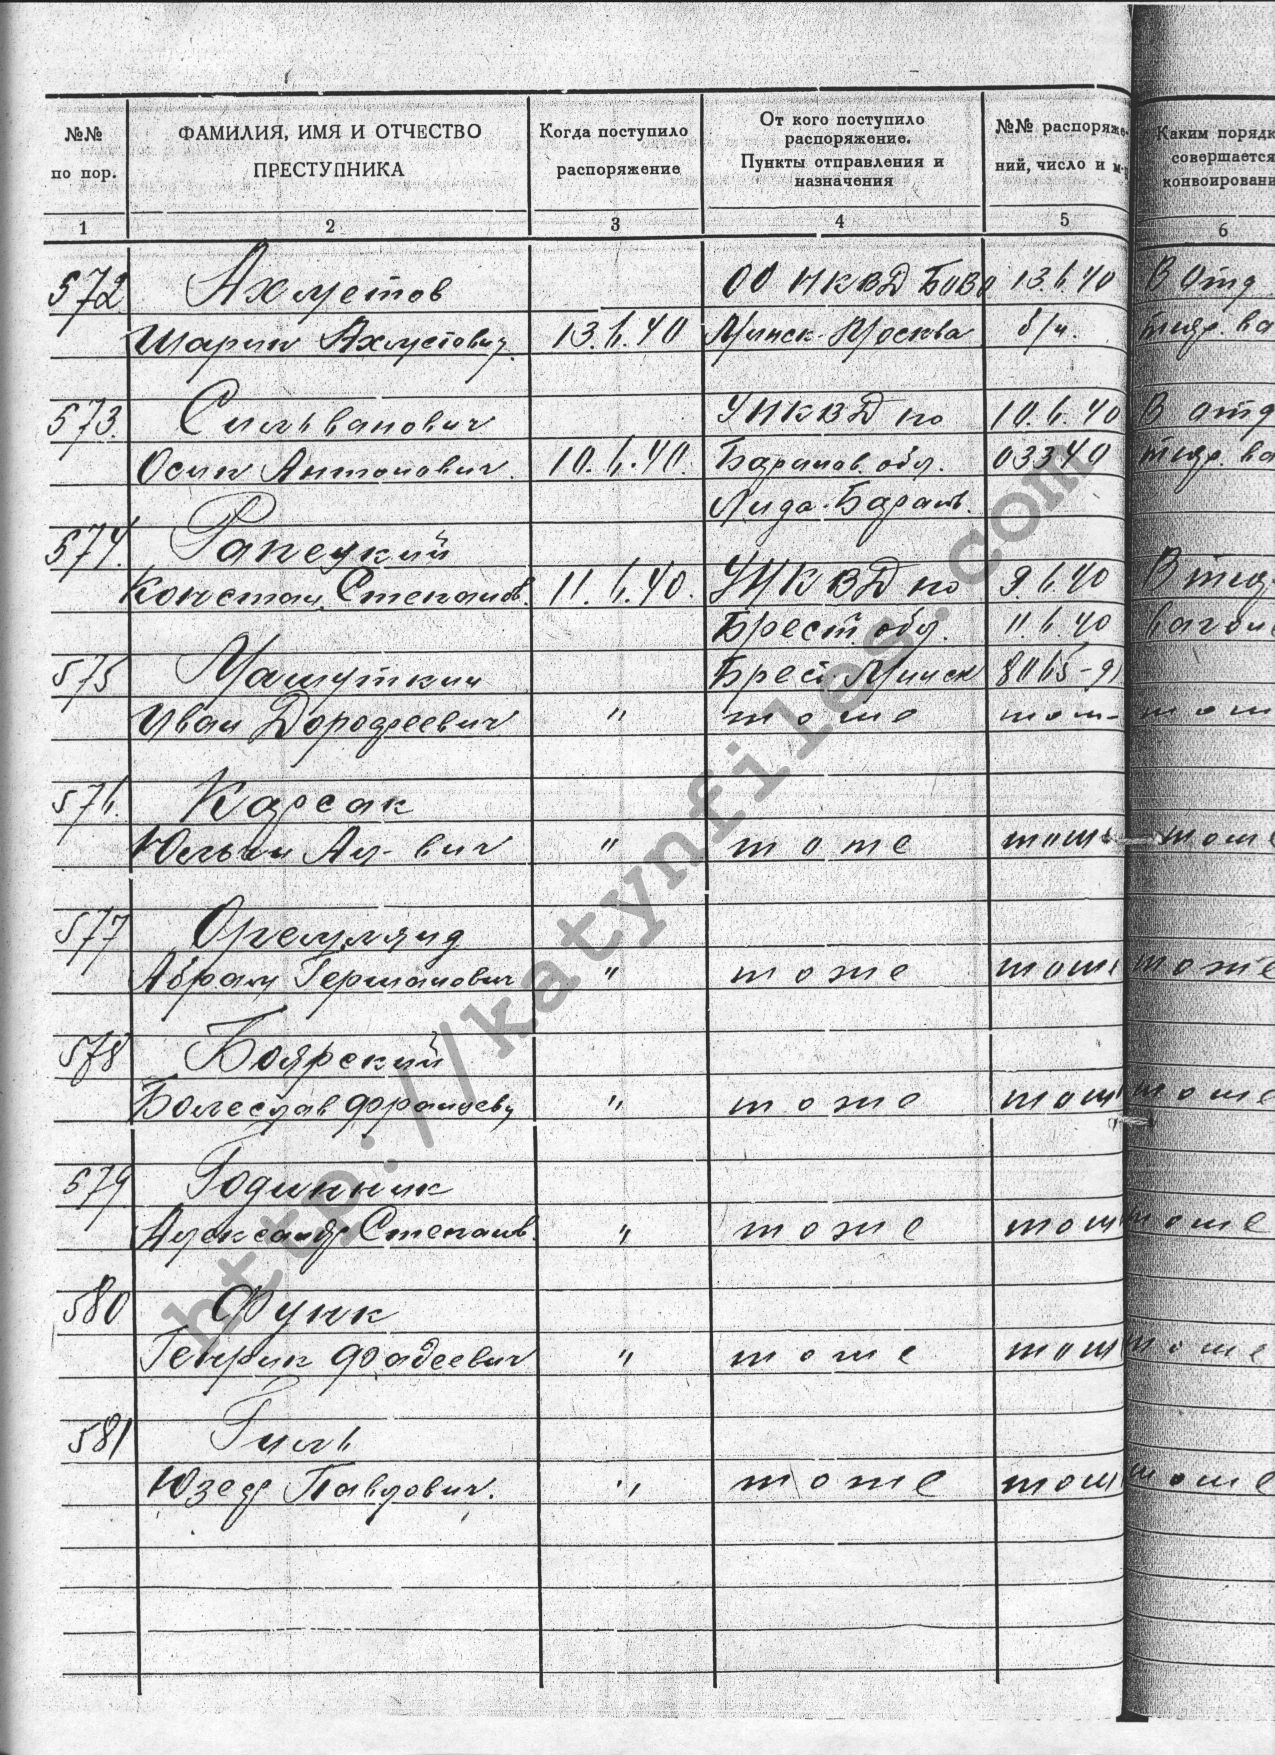 №№ по пор.
ФАМИЛИЯ, ИМЯ И ОТЧЕСТВО ПРЕСТУПНИКА
Когда поступило распоряжение
От кого поступило распоряжение. Пункты отправления и назначения
№№ распоряже-ний, число и м-ц
Каким порядк совершается конвоировани
1 2 3 4 5 6
572 Ахметов ОО НКВД БОВО 13.6.40 В отд
Шарип Ахметович 13.6.40 Минск-Москва б/н. тюр. ва
573. Сильванович УНКВД по 10.6.40 В отд
Осип Антонович. 10.6.40. Баранов. обл. 03340 тюр. ва
Лида-Баранов.
574. Рапецкий
Констан. Степанов. 11.6.40. УНКВД по 9.6.40 В тюр
Брест обл. 11.6.40 вагон
575 Машуткин Брест-Минск 8065-9
Иван Дорофеевич " тоже тож- тож
576. Карсак
Юльян Ал-вич " тоже тоже тоже
577
Абрам Германович " тоже тоже тоже
578 Боярский
Болеслав Францев " тоже тож тоже
579 Годинник
Александр Степанов. " тоже тож тоже
580 Функ
Генрик Фадеевич " тоже тож тоже
581 Гиль
Юзеф Павлович. " тоже тож тоже
http://katynfiles.com